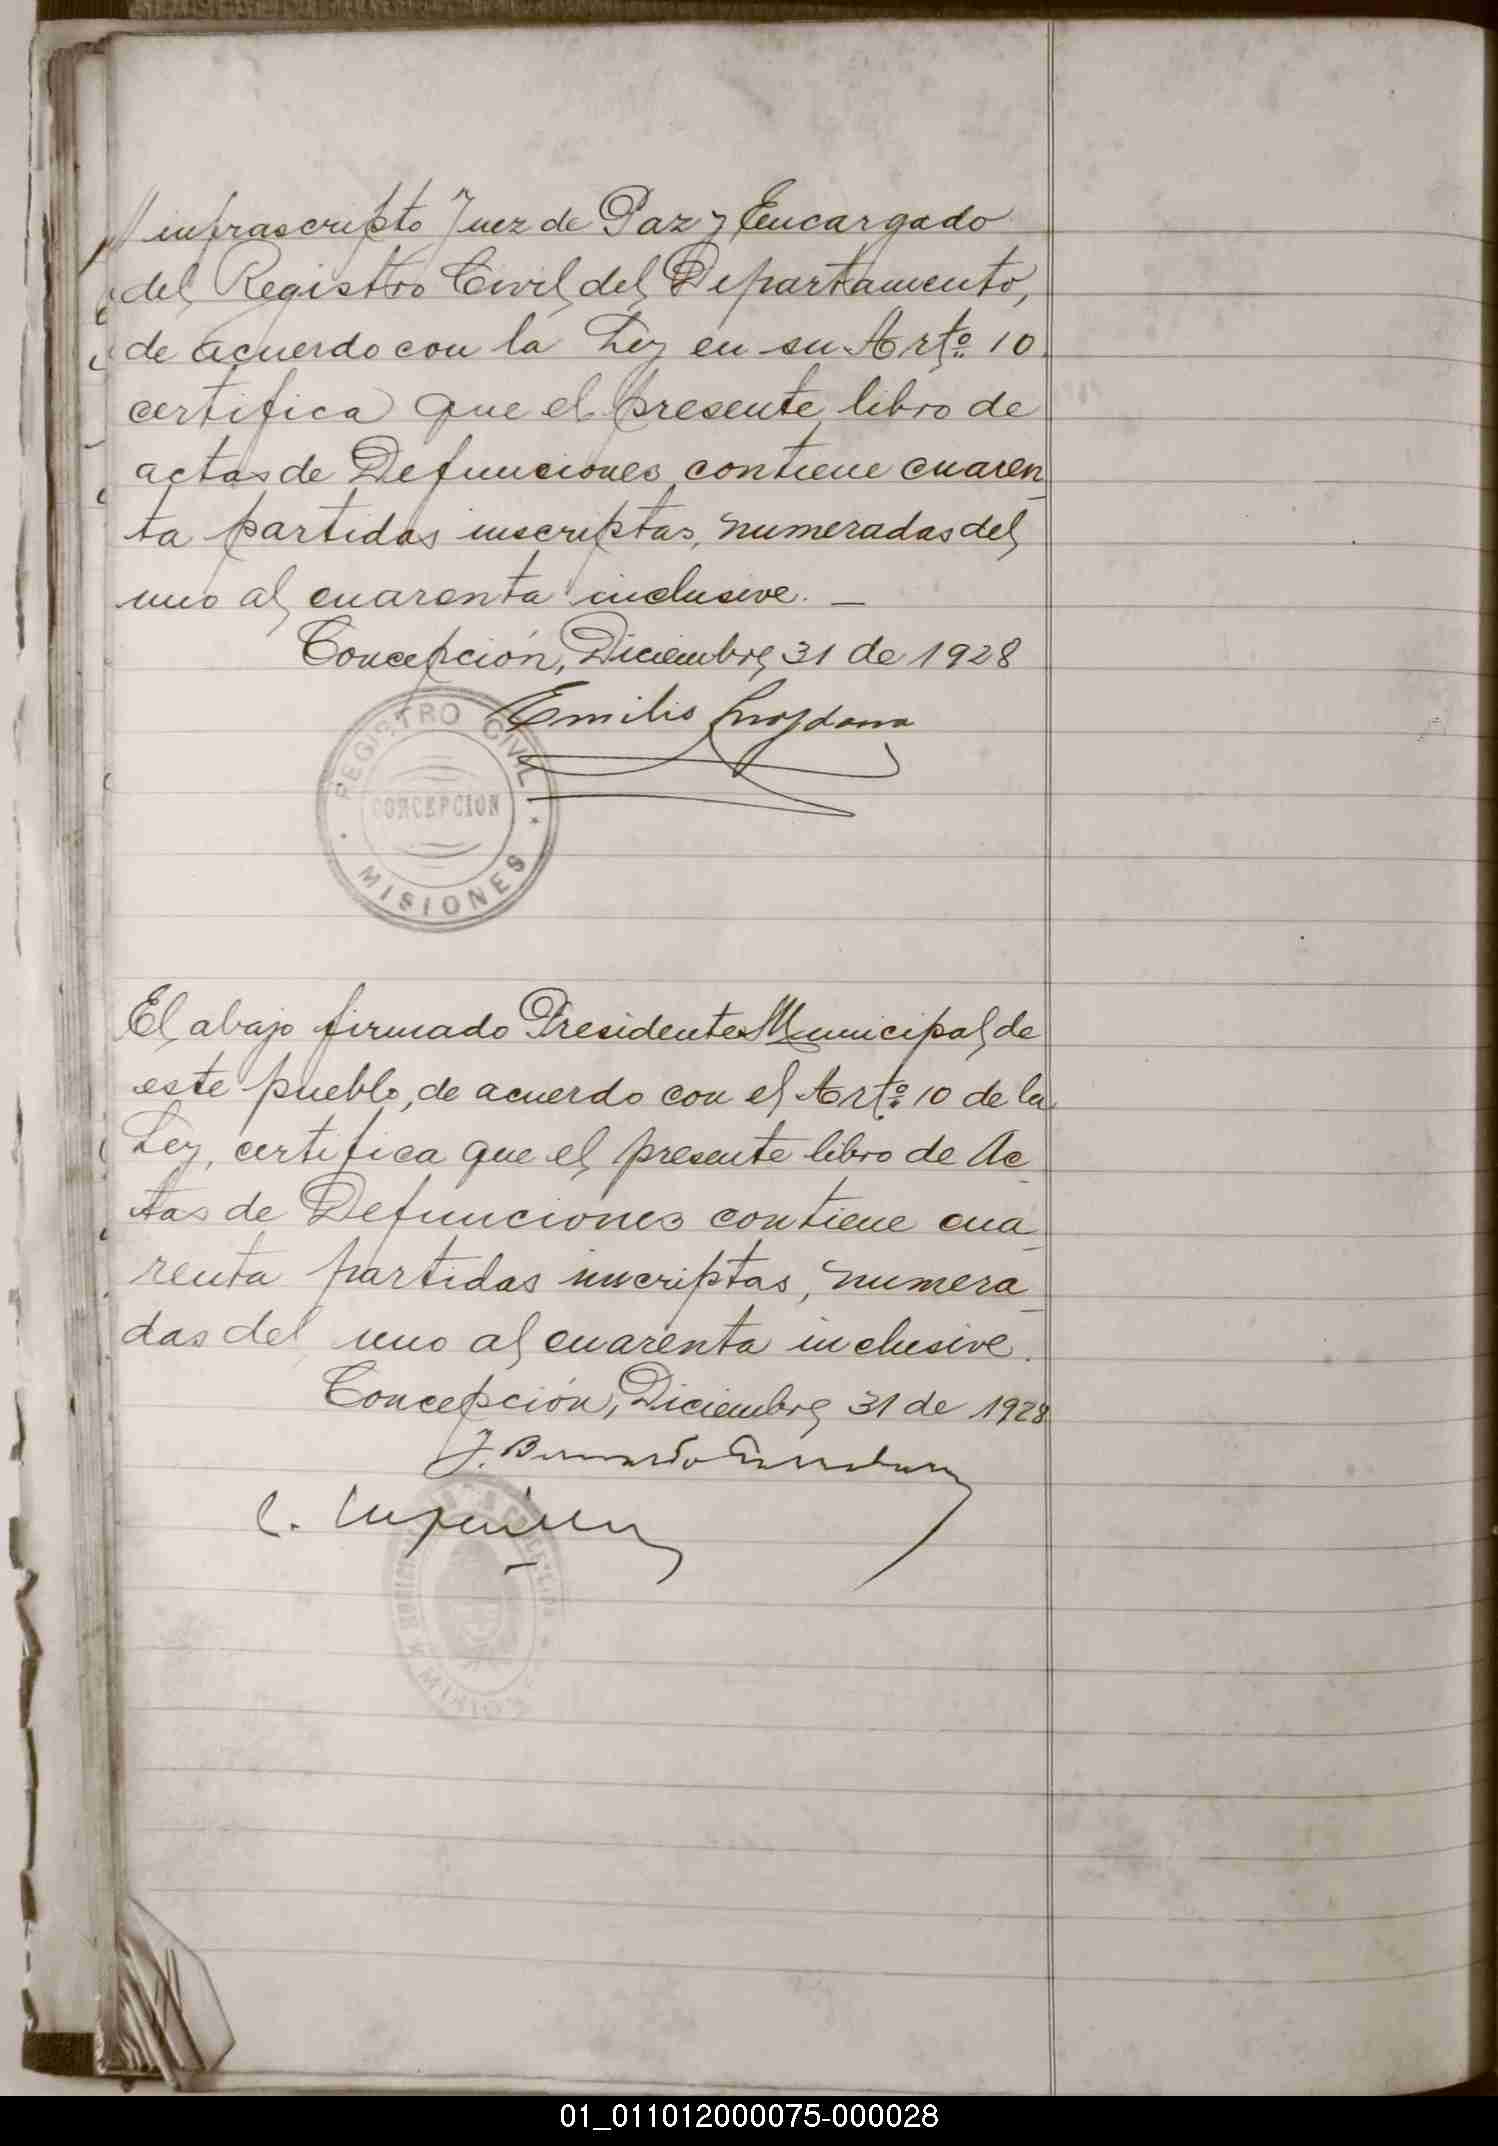 infrascripto Juez de Paz y Encargado
del Registro Civil del Departamento,
de acuerdo con la Ley en su Artº 10
certifica que el presente libro de
actas de Defunciones contiene cuaren_
ta partidas inscriptas, numeradas del
uno al cuarenta inclusive. _
Concepción, Diciembre 31 de 1928
Emilio
REGISTRO CIVIL
CONCEPCION
MISIONES
El abajo firmado Presidente Municipal de
este pueblo, de acuerdo con el Artº 10 de la
Ley, certifica que el presente libro de Ac_
tas de Defunciones contiene cua_
renta partidas inscriptas, numera_
das del uno al cuarenta inclusive.
Concepción, Diciembre 31 de 1928
J. Bernardo
01_011012000075-000028